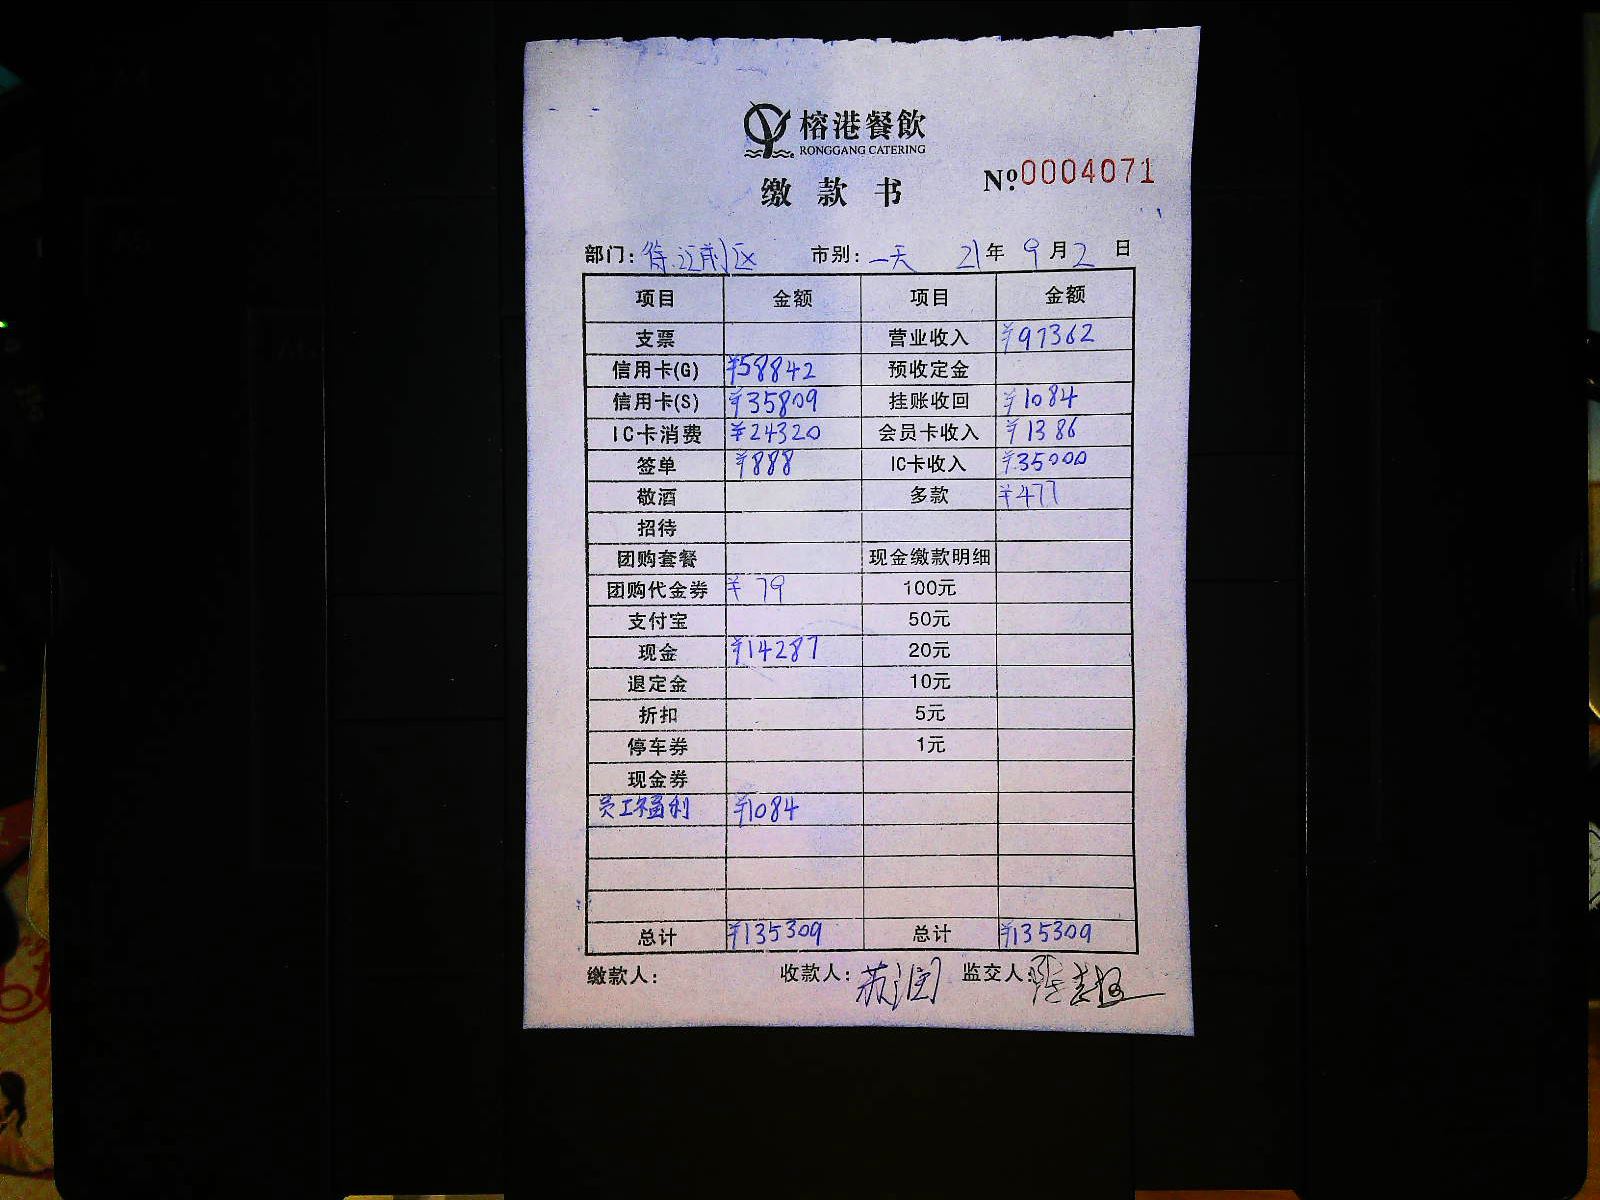 榕港餐飲
RONGGANG CATERING
缴款书
№0004071
部门: 市别: 一天 21年 9月2日
项目 金额 项目 金额
支票 营业收入 ¥97362
信用卡(G) ¥58842 预收定金
信用卡(S) ¥35809 挂账收回 ¥1084
IC卡消费 ¥24320 会员卡收入 ¥1386
签单 ¥888 IC卡收入 ¥35000
敬酒 多款 ¥477
招待
团购套餐 现金缴款明细
团购代金券 ¥79 100元
支付宝 50元
现金 ¥14287 20元
退定金 10元
折扣 5元
停车券 1元
现金券
员工福利 ¥1084
总计 ¥135309 总计 ¥135309
缴款人: 收款人: 苏润 监交人: